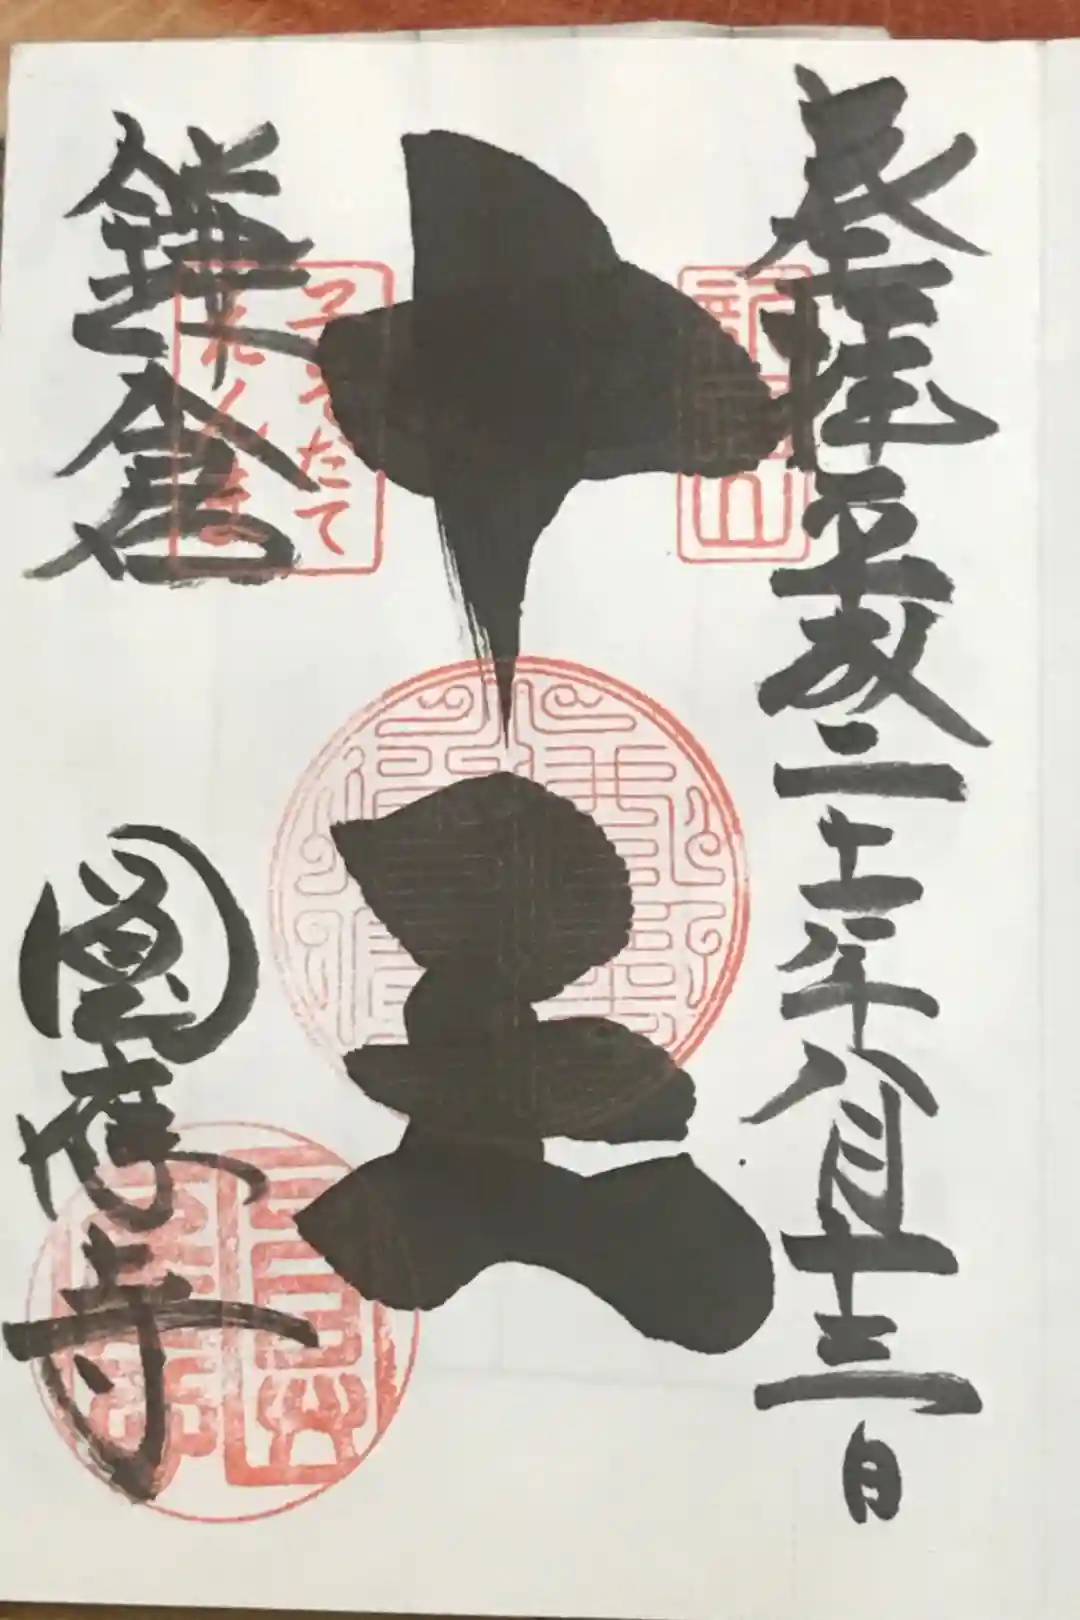 奉拝平成二十一年八月十三日
新居山
十王
子そだて
鎌倉
圓應寺